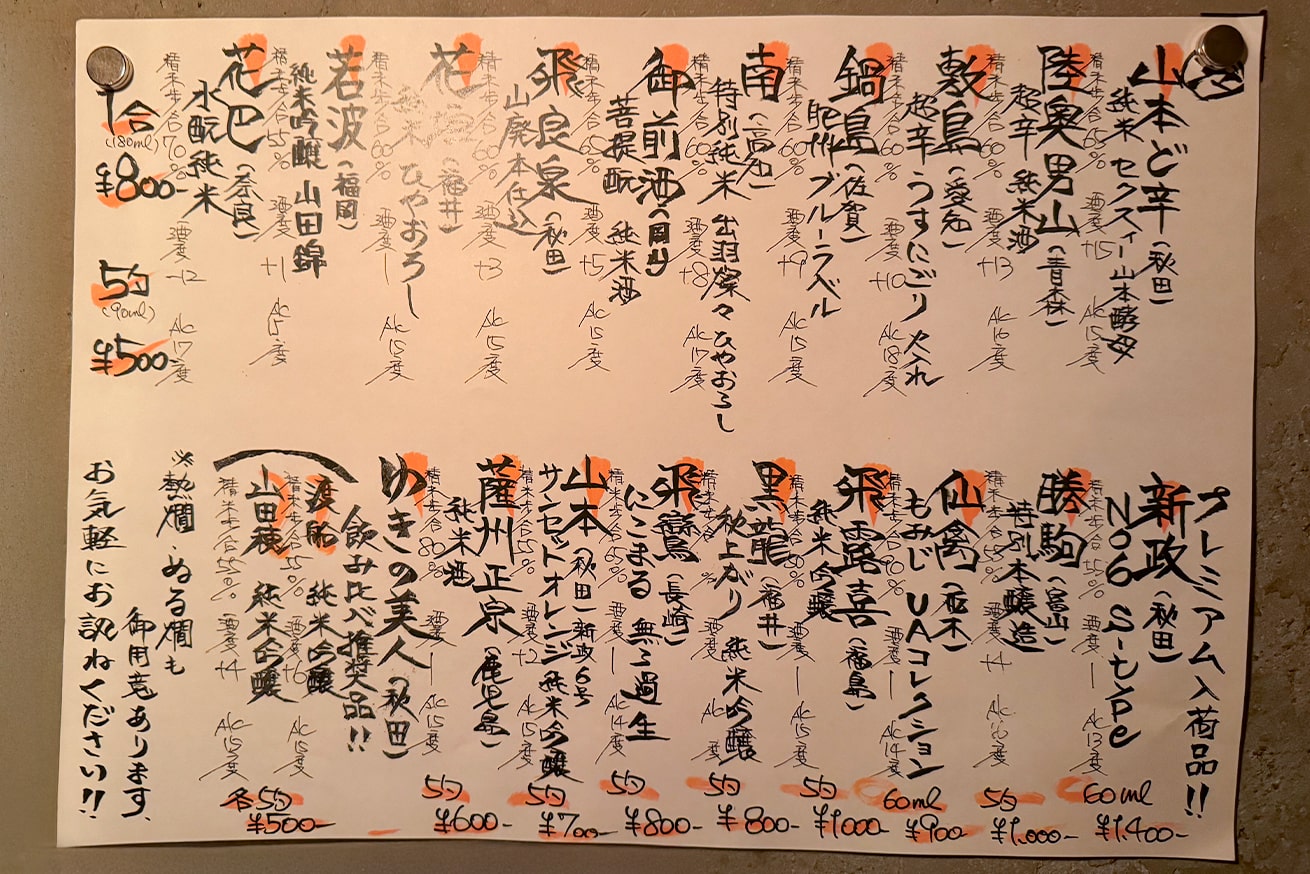 山本ど辛(秋田)
純米 セクスィー山本酵母
精米歩合65% 酒度+15 Alc15度
陸奥男山(青森)
超辛 純米酒
精米歩合60% 酒度+13 Alc16度
敷島(愛知)
超辛 うすにごり 火入れ
精米歩合60% 酒度+10 Alc18度
鍋島(佐賀)
肥州ブルーラベル
精米歩合60% 酒度+9 Alc15度
南(高知)
特別純米 出羽燦々 ひやおろし
精米歩合60% 酒度+8 Alc17度
御前酒(岡山)
菩提酛 純米酒
精米歩合65% 酒度+5 Alc15度
飛良泉(秋田)
山廃本仕込
精米歩合60% 酒度+3 Alc15度
花垣(福井)
純米 ひやおろし
精米歩合60% 酒度-1 Alc15度
若波(福岡)
純米吟醸 山田錦
精米歩合55% 酒度+1 Alc15度
花巴(奈良)
水酛純米
精米歩合70% 酒度-12 Alc17度
1合
(180ml)
¥800-
5勺
(90ml)
¥500-
プレミアム入荷品!!
新政(秋田)
No6 S-type
Alc13度
60ml
¥1,400-
勝駒(富山)
特別本醸造
精米歩合55% 酒度+4
5勺
¥1,000-
仙禽(栃木)
もみじ UAコレクション
Alc14度
60ml
¥900-
飛露喜(福島)
純米吟醸
精米歩合50% 酒度 Alc15度
5勺
¥1000-
黒龍(福井)
秋上がり 純米吟醸
精米歩合 酒度 Alc 度
5勺
¥800-
飛鸞(長崎)
にこまる 無ろ過生
酒度 Alc14度
5勺
¥800-
山本(秋田)新政6号
サンセットオレンジ純米吟醸
精米歩合 酒度+2 Alc15度
5勺
¥700-
薩州正宗(鹿児島)
純米酒
精米歩合80% 酒度-1 Alc15度
5勺
¥600-
ゆきの美人(秋田)
飲み比べ推奨品!!
渡船 純米吟醸
精米歩合55% 酒度+6 Alc15度
山田穂 純米吟醸
精米歩合55% 酒度+4 Alc15度
各5勺
¥500-
※熱燗・ぬる燗も
御用意あります、
お気軽にお訊ねください!!